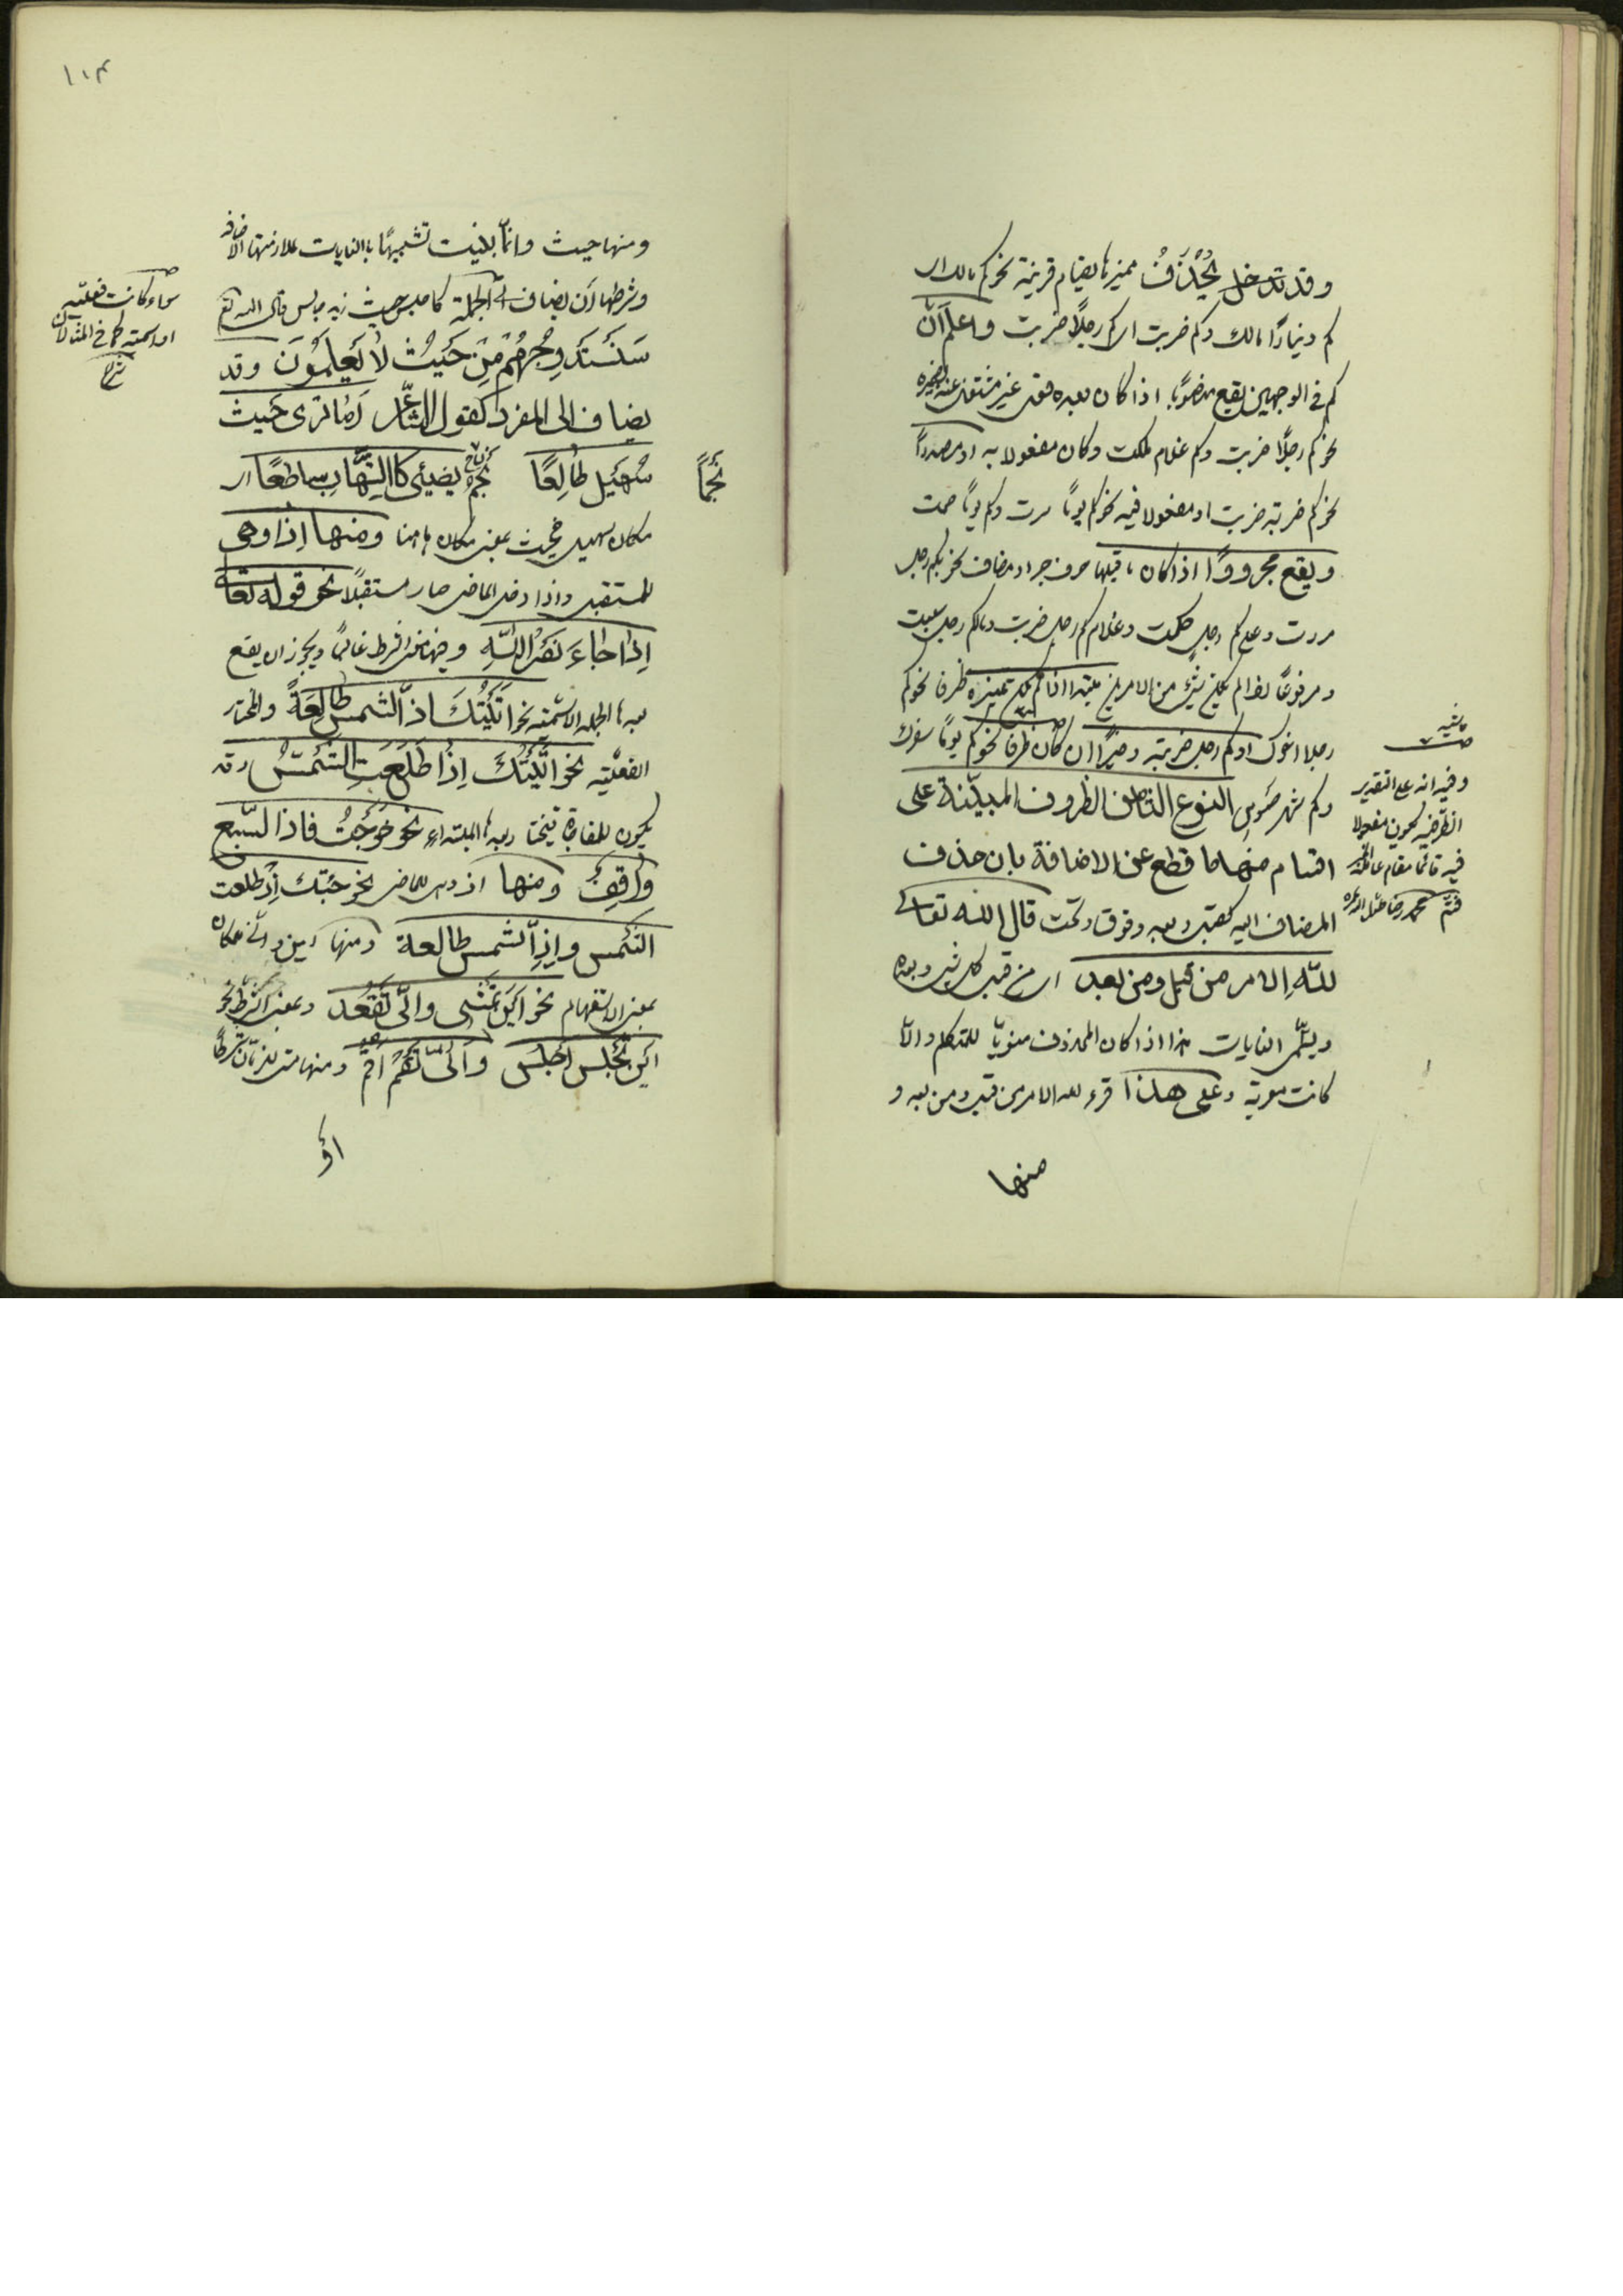 وقد تدخل يُحْذَفُ مميزها لقيام قرينة نحو كم مالك اى
كم دينارًا مالك وكم ضربت اى كم رجلًا ضربت واعلم انّ
كم فى الوجهين يقع منصوبًا اذا كان بعده فعل غير مشتغل عنه بضميره
نحو كم رجلًا ضربت وكم غلام ملكت وكان مفعولا به او مصدرًا
نحو كم ضربته ضربت او مفعولا فيه نحو كم يومًا سرت وكم يومًا صمت
ويقع مجرورًا اذا كان ما قبلها حرف جر او مضاف نحو بكم رجل
مررت وعلى كم رجل حكمت وغلام كم رجل ضربت ومال كم رجل سلبت
ومرفوعًا اذا لم يكن شئ من الامرين مبتدا اذا لم يكن تميزه ظرفا نحو كم
رجلا اخوك او كم رجل ضربته وخبرًا ان كان ظرفا نحو كم يومًا سفرك
وكم شهر صومى النوع الثامن الظروف المبينة على
اقسام منها ما قطع عن الاضافة بان حذف
المضاف اليه كقبل وبعد وفوق وتحت قال الله تعالى
للّهِ الامر من قبل ومن بعد اى من قبل كل شئ وبعده
ويسمّى الغايات هذا اذا كان المحذوف منويّا للمتكلم والّا
كانت معربة وعلى هذا قرء لله الامر من قبل ومن بعد و
منها
حاشيه
وفيه انه على التقدير
الظرفيه يكون مفعولا
فيه قائما مقام عامله
محمد رضا
١٠٤
ومنها حيث وانّما بنيت تشبيهًا بالغايات لملازمتها الاضافه
وشرطها اَن يضاف الى الجملة كاجلس حيث زيد جالس وقال الله تعالى
سَنَسْتَدْرِجُهُمْ مِنْ حَيْثُ لا يَعْلَمُونَ وقد
يضاف الى المفرد كقول الشاعر اَمَا تَرى حَيْثَ
سُهَيْلٍ طالِعًا نجم يضيئى كاالشّهابِ ساطعًا اى
نَجْمًا
مكان سهيل فحيث بمعنى مكان هاهنا ومنها اِذا وهى
للمستقبل واذا دخل الماضى صار مستقبلًا نحو قوله تعالى
اِذا جاءَ نَصْرُ اللّهِ وفيها معنى الشرط غالبًا ويجوز ان يقع
بعدها الجمله الاسميّه نحو اتَيْتُكَ اذَا الشمس طالِعَةٌ والمختار
الفعليّه نحو اتَيْتُكَ اِذا طَلَعَتِ الشَّمْسُ وقد
يكون للمفاجاة فيختار بعدها المبتداء نحو خَرَجْتُ فاذا السّبع
واقِفٌ ومنها اذ وهى للماضى نحو جئتك اِذْ طلعت
الشّمس واِذِ الشمس طالعة ومنها اين وانّى للمكان
بمعنى الاستفهام نحو اَيْنَ تمشى وانّى تَقْعُد وبمعنى الشرط نحو
اَيْنَ تَجْلِس اَجْلِس وَاَنّى تَقُمْ اَقُمْ ومنها متى للزمان شرطًا
اَوْ
سواء كانت فعليّه
او اسميّه كما فى المثالين
شرح